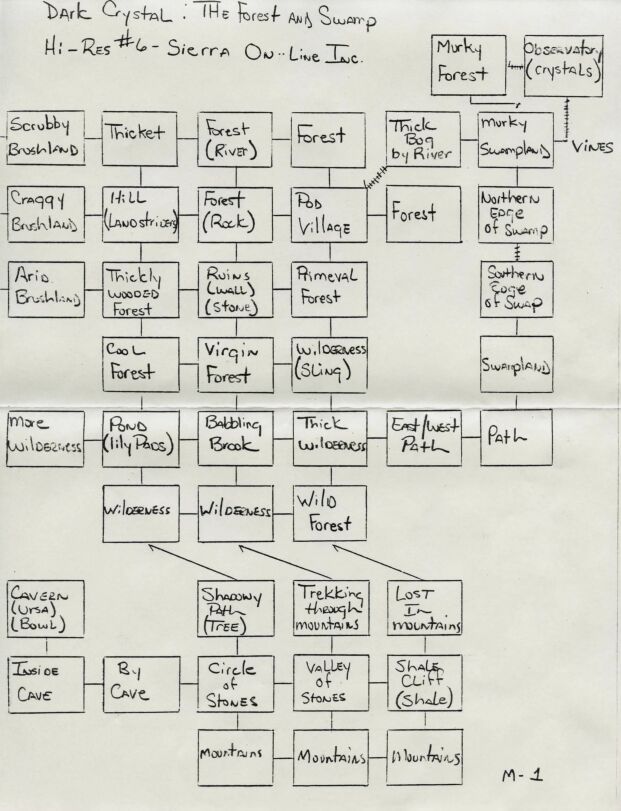 Dark Crystal : The Forest and Swamp
Hi-Res #6 - Sierra On-Line Inc.
Murky
Forest
Observatory
(crystals)
Scrubby
Brushland
Thicket
Forest
(River)
Forest
Thick
Bog
by River
Murky
Swampland
Vines
Craggy
Brushland
Hill
(Landstriders)
Forest
(Rock)
Pod
Village
Forest
Northern
Edge
of Swamp
Arid
Brushland
Thickly
Wooded
Forest
Ruins
(wall)
(Stone)
Primeval
Forest
Southern
Edge
of Swap
Cool
Forest
Virgin
Forest
Wilderness
(Sling)
Swampland
More
Wilderness
Pond
(lily Pads)
Babbling
Brook
Thick
Wilderness
East/West
Path
Path
Wilderness
Wilderness
Wild
Forest
Cavern
(Ursa)
(Bowl)
Shadowy
Path
(Tree)
Trekking
through
mountains
Lost
In
mountains
Inside
Cave
By
Cave
Circle
of
Stones
Valley
of
Stones
Shale
Cliff
(Shale)
Mountains
Mountains
Mountains
M-1